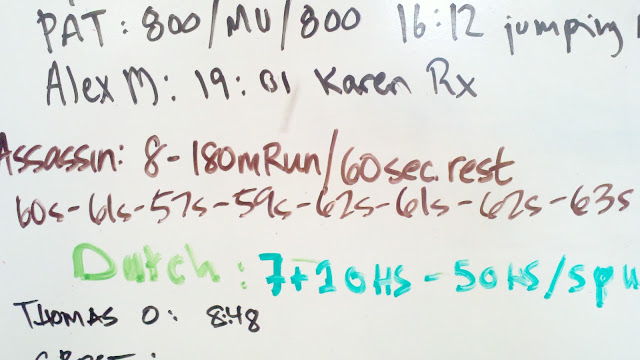 PAT: 800/MU/800 16:12 jumping
Alex M: 19:01 Karen Rx
Assassin: 8-180mRun/60sec.rest
60s-61s-57s-59s-62s-61s-62s-63s
Dutch: 7+20HS-50HS/5pu
THOMAS O: 8:48